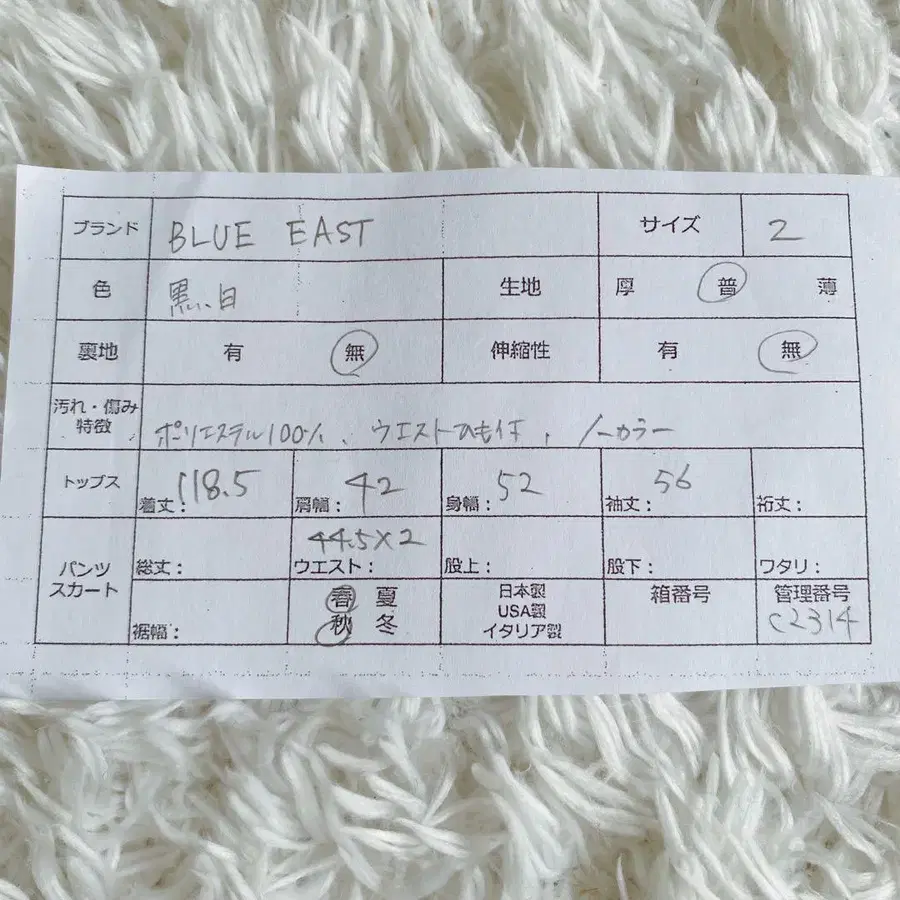 ブランド BLUE EAST サイズ 2
色 黒、白 生地 厚 普 薄
裏地 有 無 伸縮性 有 無
汚れ・傷み
特徴 ポリエステル100%、ウエストひも付、ノーカラー
トップス 着丈:118.5 肩幅:42 身幅:52 袖丈:56 裄丈:
パンツ
スカート 総丈: 44.5×2 ウエスト: 股上: 股下: ワタリ:
裾幅: 春 夏
秋 冬
日本製
USA製
イタリア製
箱番号 管理番号
C2314